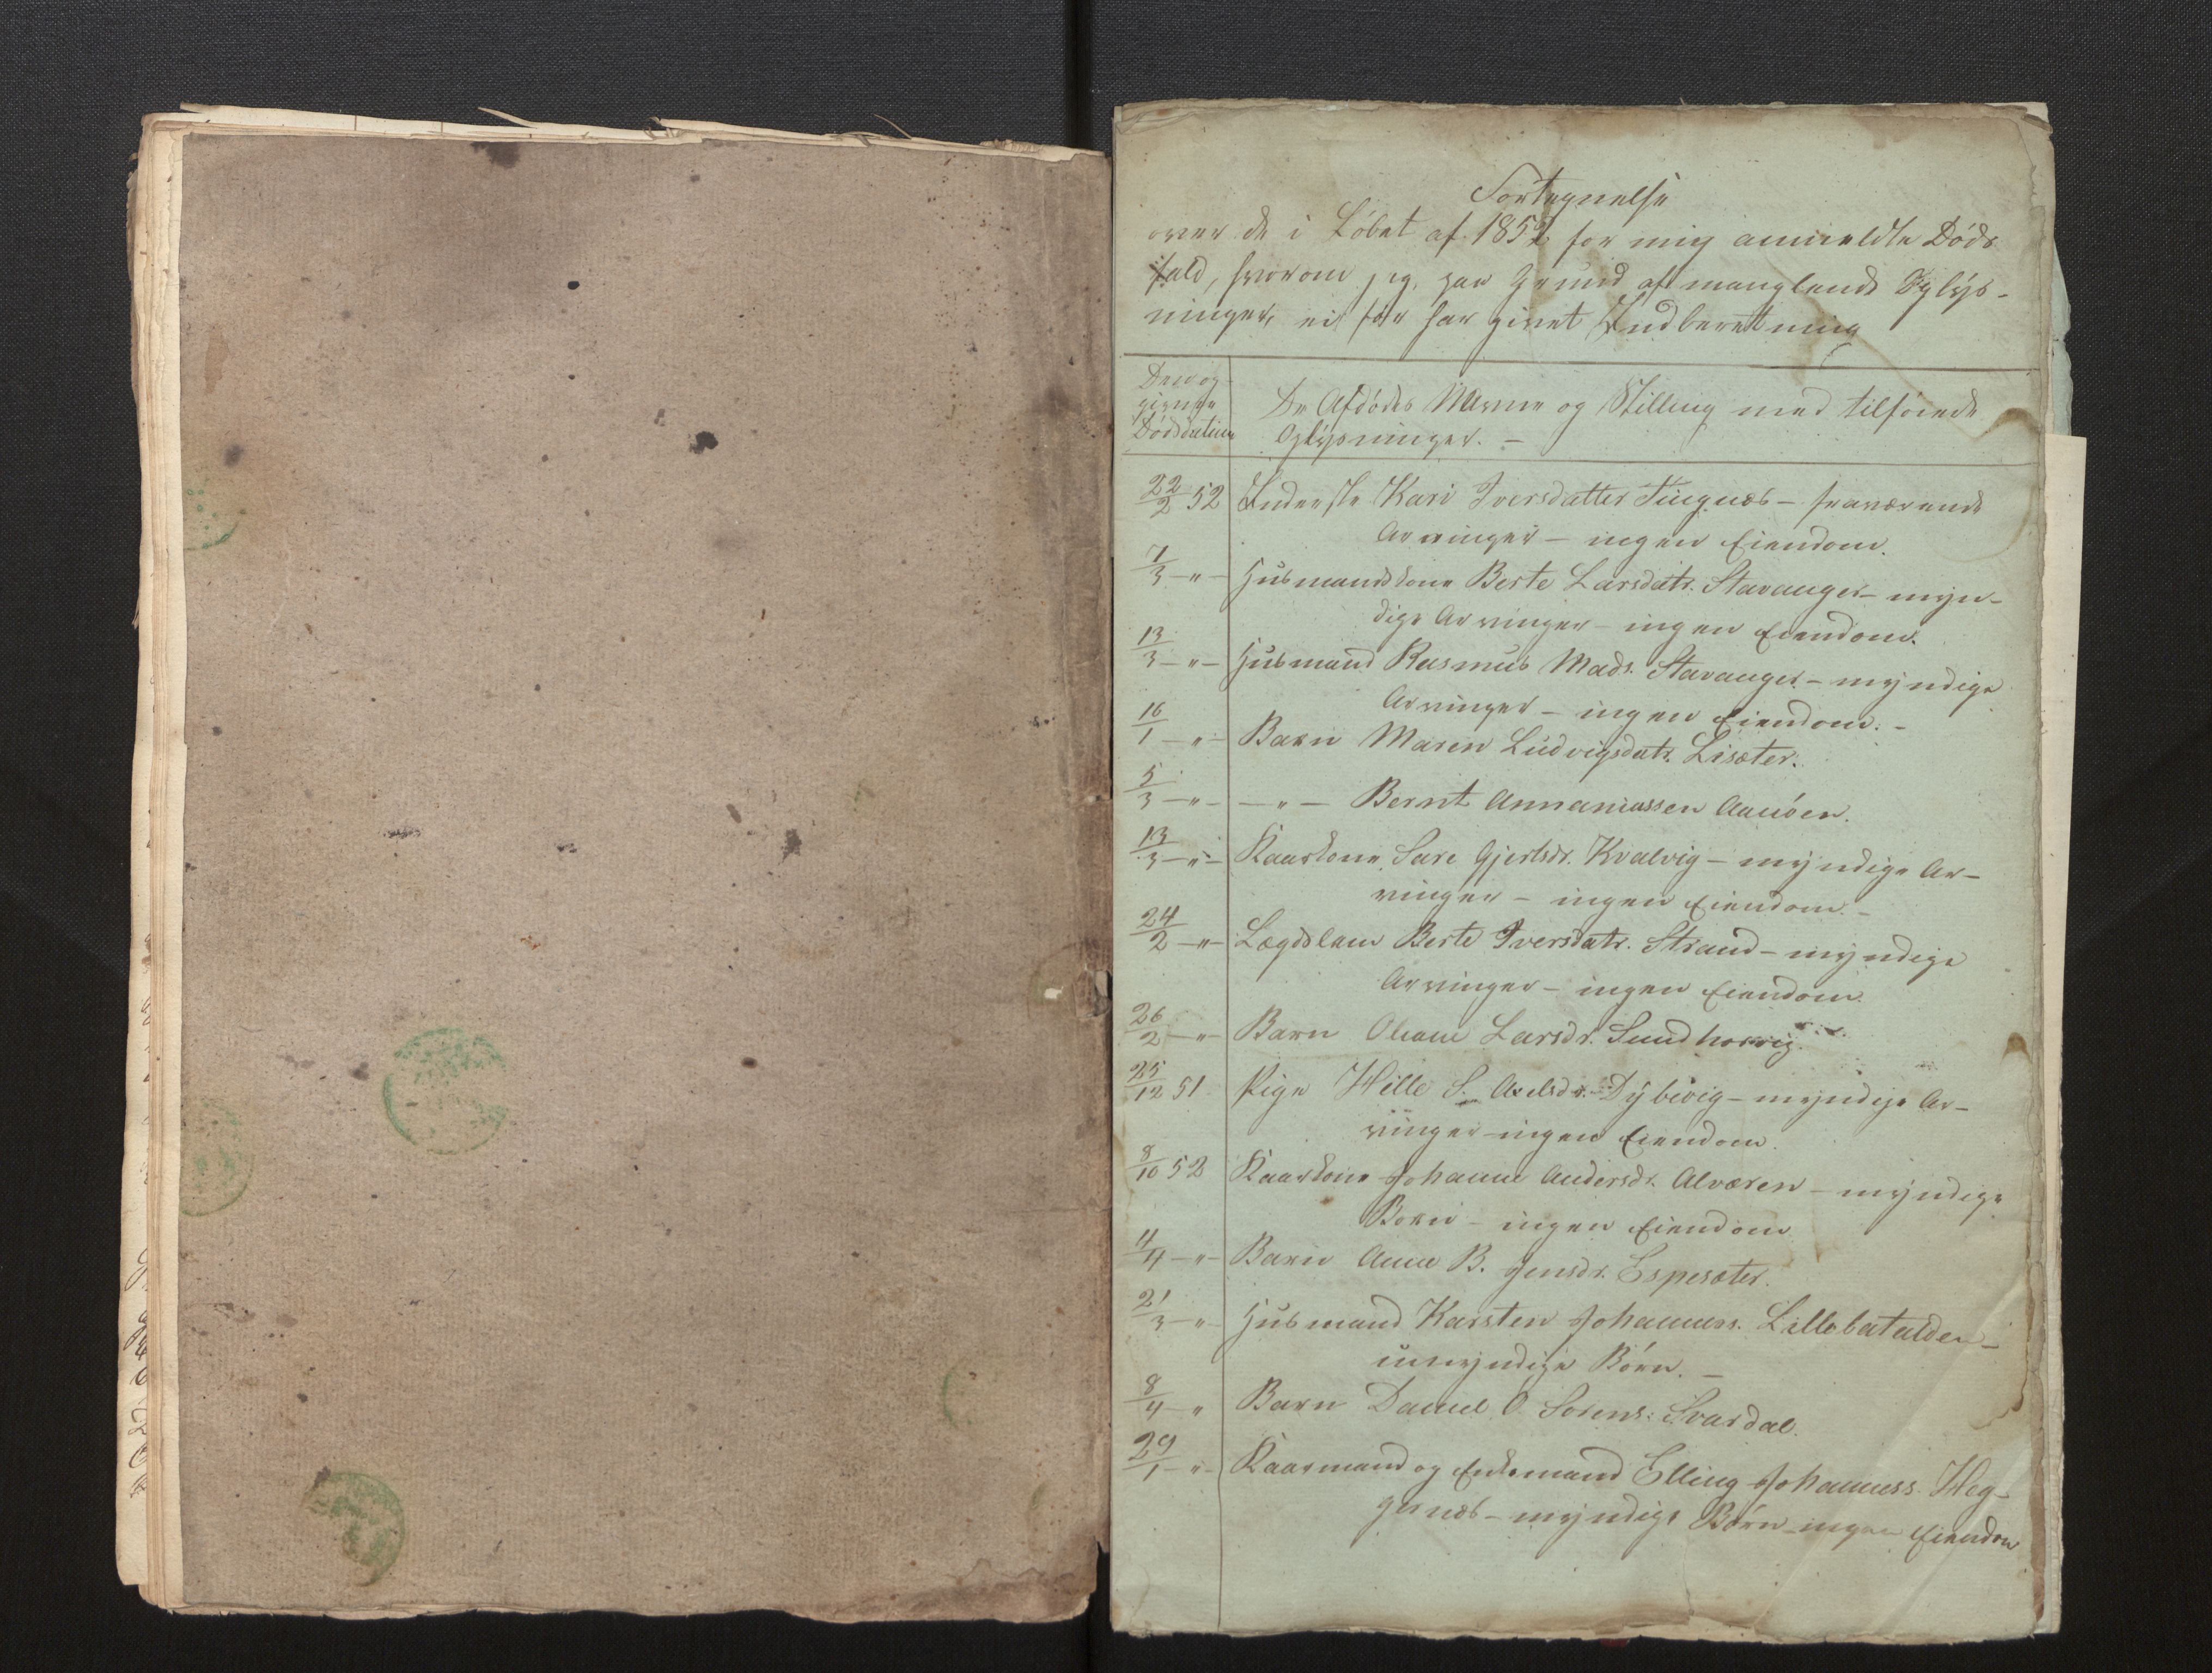 Fortegnelse
over de i Løbet af 1852 for mig anmeldte Døds
fald, hvorom jeg, paa Grund af manglende Oplys-
ninger, ei før har givet Indberetning
Den op-
givne
Dødsdatum
De Afdødes Navne og Stilling med tilføiede
Oplysninger. –
22/2 52 Inderste Kari Iversdatter Tingnæs – fraværende
Arvinger – ingen Eiendom.
7/3 –"– Husmandskone Berte Larsdatr. Stavanger – myn-
dige Arvinger – ingen Eiendom.
13/3 –"– Husmand Rasmus Mads. Stavanger – myndige
Arvinger – ingen Eiendom. –
16/1 –"– Barn Maren Ludvigsdatr. Lisæter.
5/3 –"– –"– Bernt Annaniassen Aanøen.
13/3 –"– Kaarkone Sare Gjertsdr. Kvalvig – myndige Ar-
vinger – ingen Eiendom. –
24/2 –"– Lægdslem Berte Iversdatr. Strand – myndige
Arvinger – ingen Eiendom.
26/2 –"– Barn Oliane Larsdr. Sundhorvig.
25/12 51 Pige Hille S. Axelsdr. Dybevig – myndige Ar-
vinger – ingen Eiendom.
8/10 52 Kaarkone Johanne Andersdr. Alværen – myndige
Børn – ingen Eiendom
4/4 –"– Barn Anne B. Jensdr. Espesæter.
21/3 –"– Husmand Karsten Johanness. Lillebatalden –
umyndige Børn. –
8/4 –"– Barn Daniel O Sørens: Svardal.
29/1 –"– Kaarmand og Enkemand Elling Johanness. Heg-
gernæs – myndige Børn – ingen Eiendom